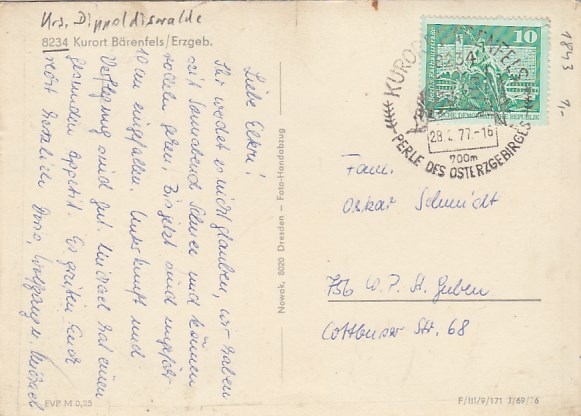 Krs. Dippoldiswalde
8234 Kurort Bärenfels/Erzgeb.
Liebe Eltern!
Ihr werdet es nicht glauben, wir haben
seit Sonnabend Schnee und können
rodeln gehen, Bis jetzt sind ungefähr
10 cm eingefallen. Unterkunft und
Verpflegung sind gut. Michael hat einen
gesunden Appetit. Es grüßen Euch
recht herzlich Dora, Wolfgang u. Michael
EVP M 0,25
Nowak, 8020 Dresden — Foto-Handabzug
10
DEUTSCHE DEMOKRATISCHE REPUBLIK
KURORT BÄRENFELS
8234
77-16
700m
PERLE DES OSTERZGEBIRGES
1843
1,-
Fam.
Oskar Schmidt
756 W. P. St. Guben
Cottbuser Str. 68
F/III/9/171 J/69/76